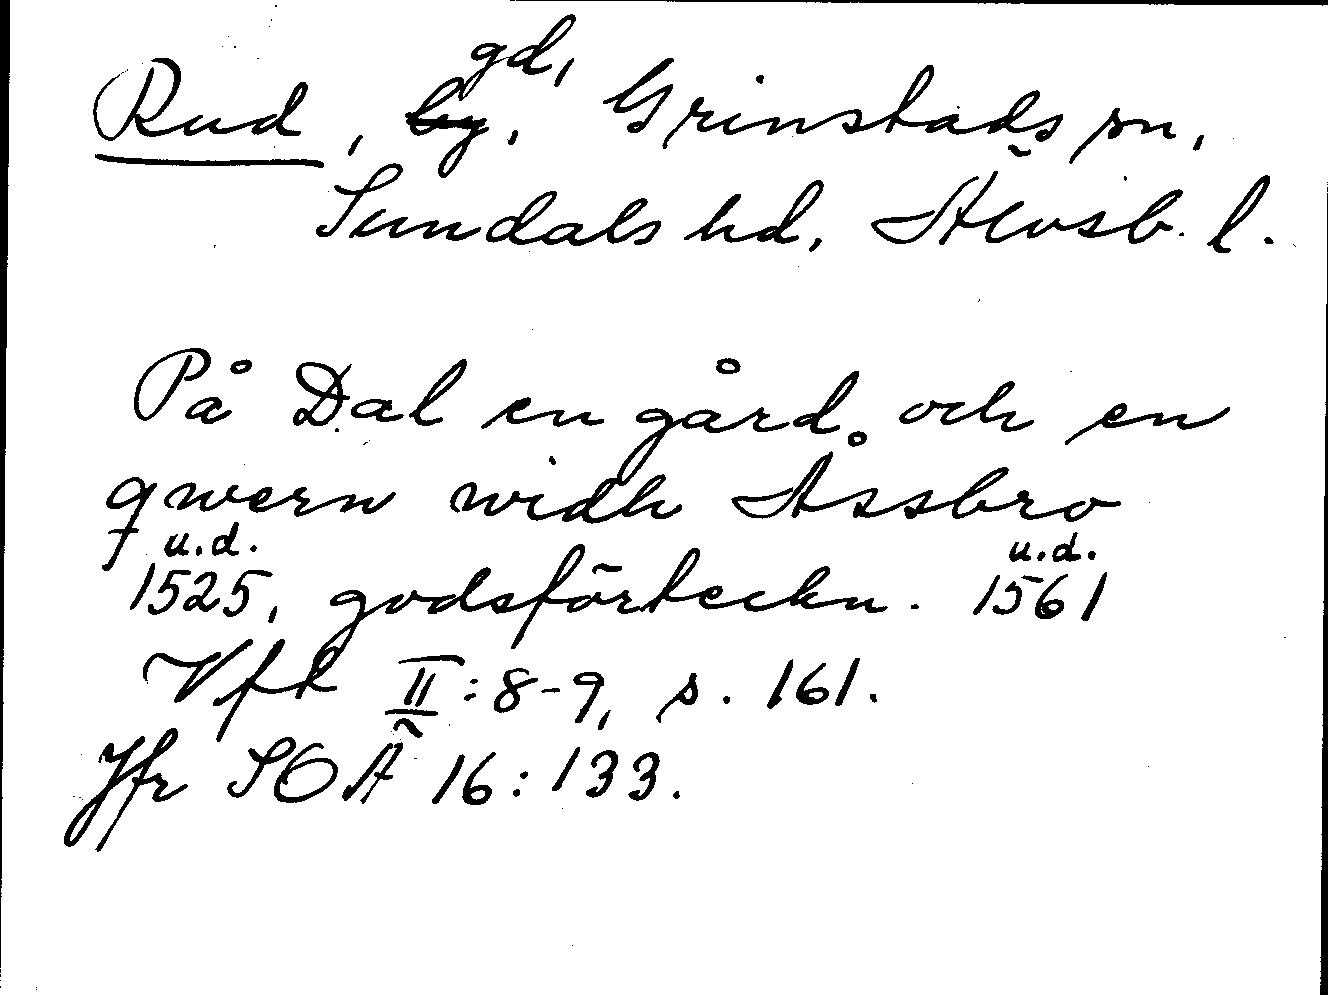 Rud, gd, Grinstads sn,
Sundals hd, Älvsb. l.
På Dal en gård och en
qwern widh Åssbro
u.d. u.d.
1525, godsförteckn. 1561
Vfh II:8-9, s. 161.
Jfr SOÄ 16:133.